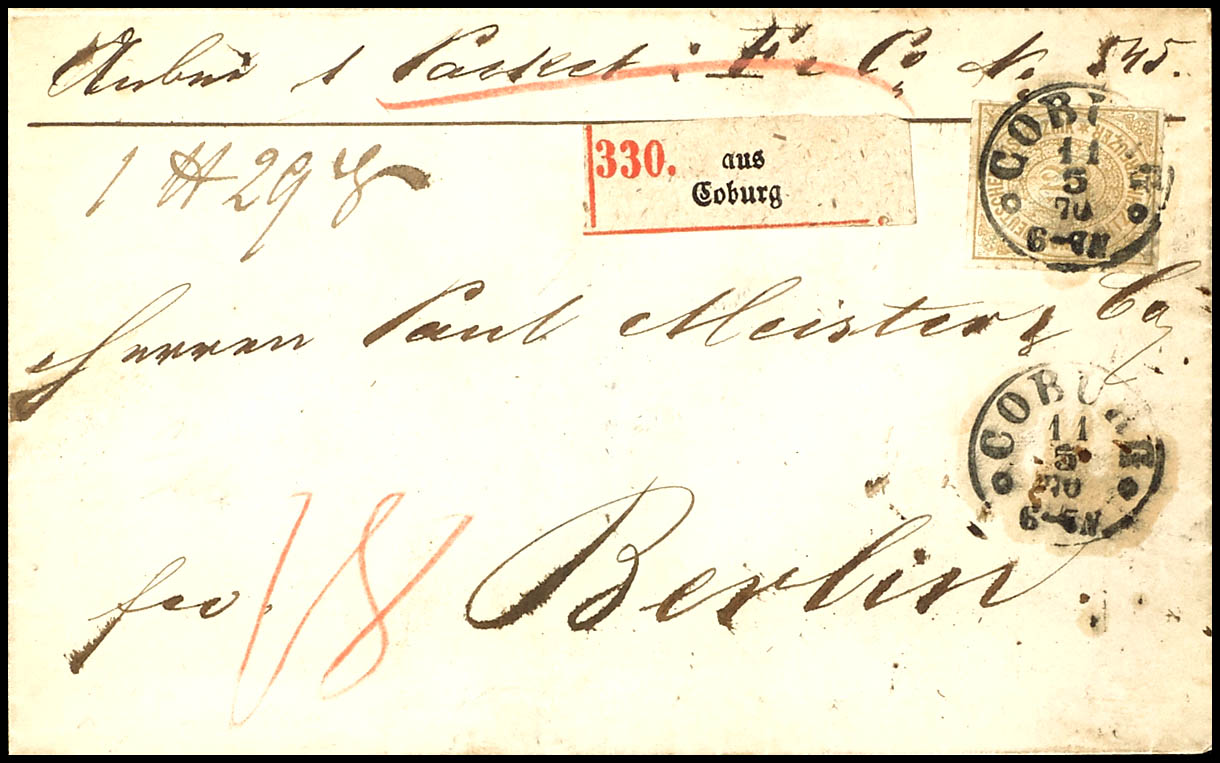 Anbei 1 Packet : F & Co N. 545.
330. aus
Coburg
COBURG
11
5
70
6-7N
1 ℔ 29
Herren Paul Meister & Co.
COBURG
11
5
70
6-7N
fco. 18 Berlin.